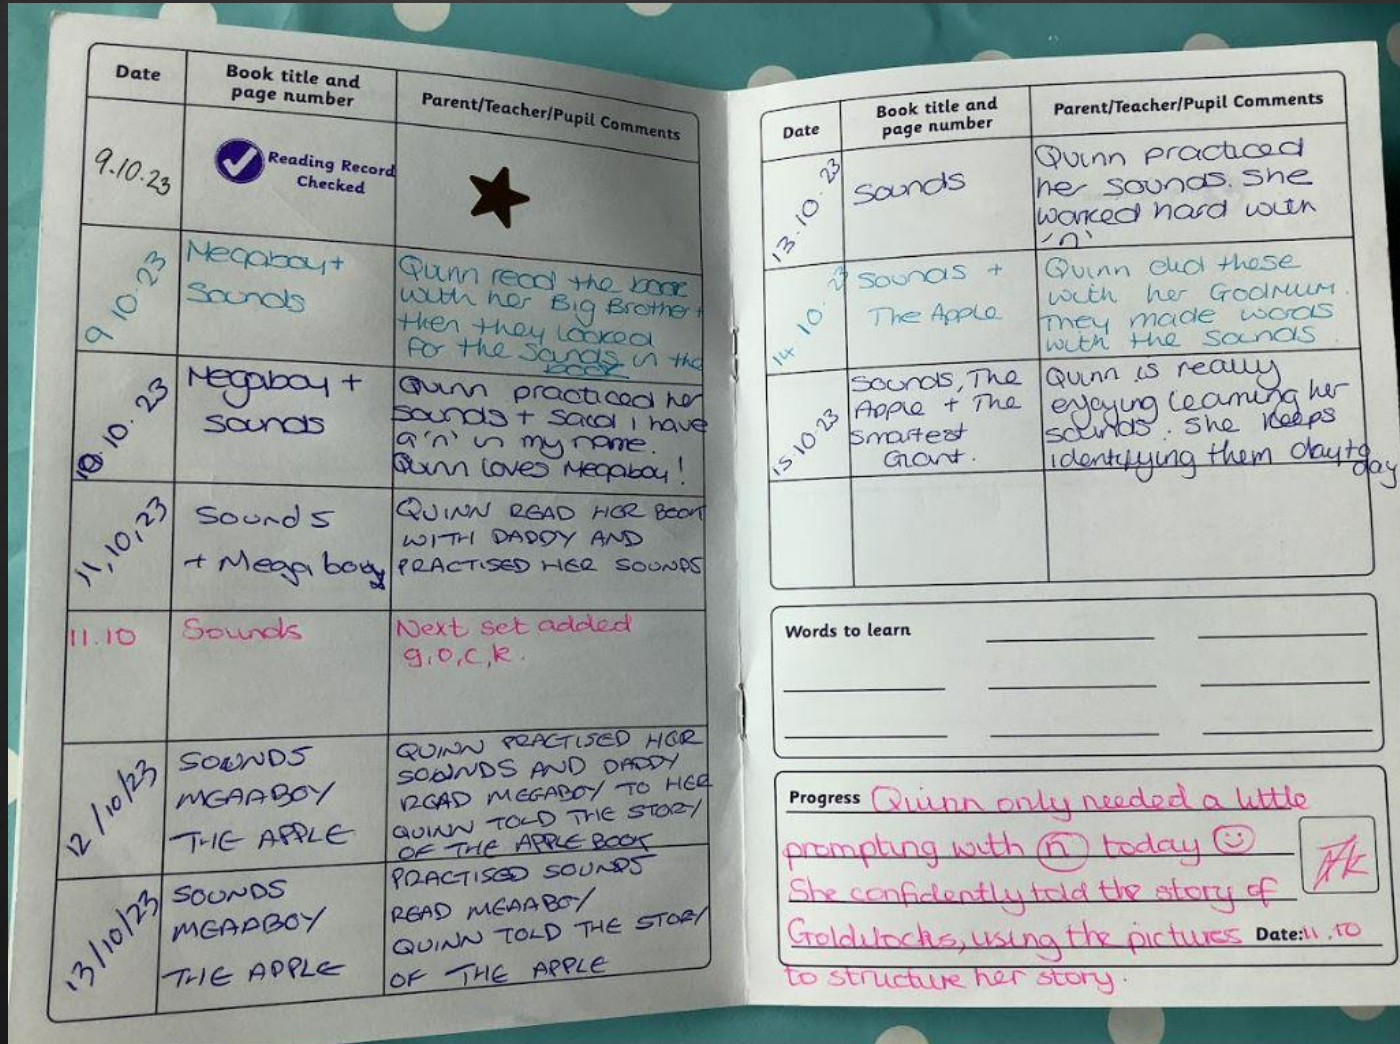 Date
Book title and
page number
Parent/Teacher/Pupil Comments
9.10.23
Reading Record
Checked
9 10.23
Megaboy +
Sounds
Quinn read the book
with her Big Brother +
then they looked
for the sounds in the
book
10.10.23
Megaboy +
sounds
Quinn practiced her
sounds + said i have
a 'n' in my name.
Quinn loves Megaboy!
11,10,23
Sounds
+ Mega boy
QUINN READ HER BOOK
WITH DADDY AND
PRACTISED HER SOUNDS
11.10
Sounds
Next set added
g,o,c,k.
12/10/23
SOUNDS
MEGABOY
THE APPLE
QUINN PRACTISED HER
SOUNDS AND DADDY
READ MEGABOY TO HER
QUINN TOLD THE STORY
OF THE APPLE BOOK
13/10/23
SOUNDS
MEGABOY
THE APPLE
PRACTISED SOUNDS
READ MEGABOY
QUINN TOLD THE STORY
OF THE APPLE
Date
Book title and
page number
Parent/Teacher/Pupil Comments
13.10.23
Sounds
Quinn practiced
her sounds. She
worked hard with
'n'
14.10.23
Sounds +
The Apple
Quinn did these
with her Godmum.
They made words
with the sounds
15.10.23
Sounds, The
Apple + The
Smartest
Giant.
Quinn is really
enjoying learning her
sounds. She keeps
identifying them day to
day
Words to learn
Progress Quinn only needed a little
prompting with n today
She confidently told the story of
Goldilocks, using the pictures Date: 11.10
to structure her story.